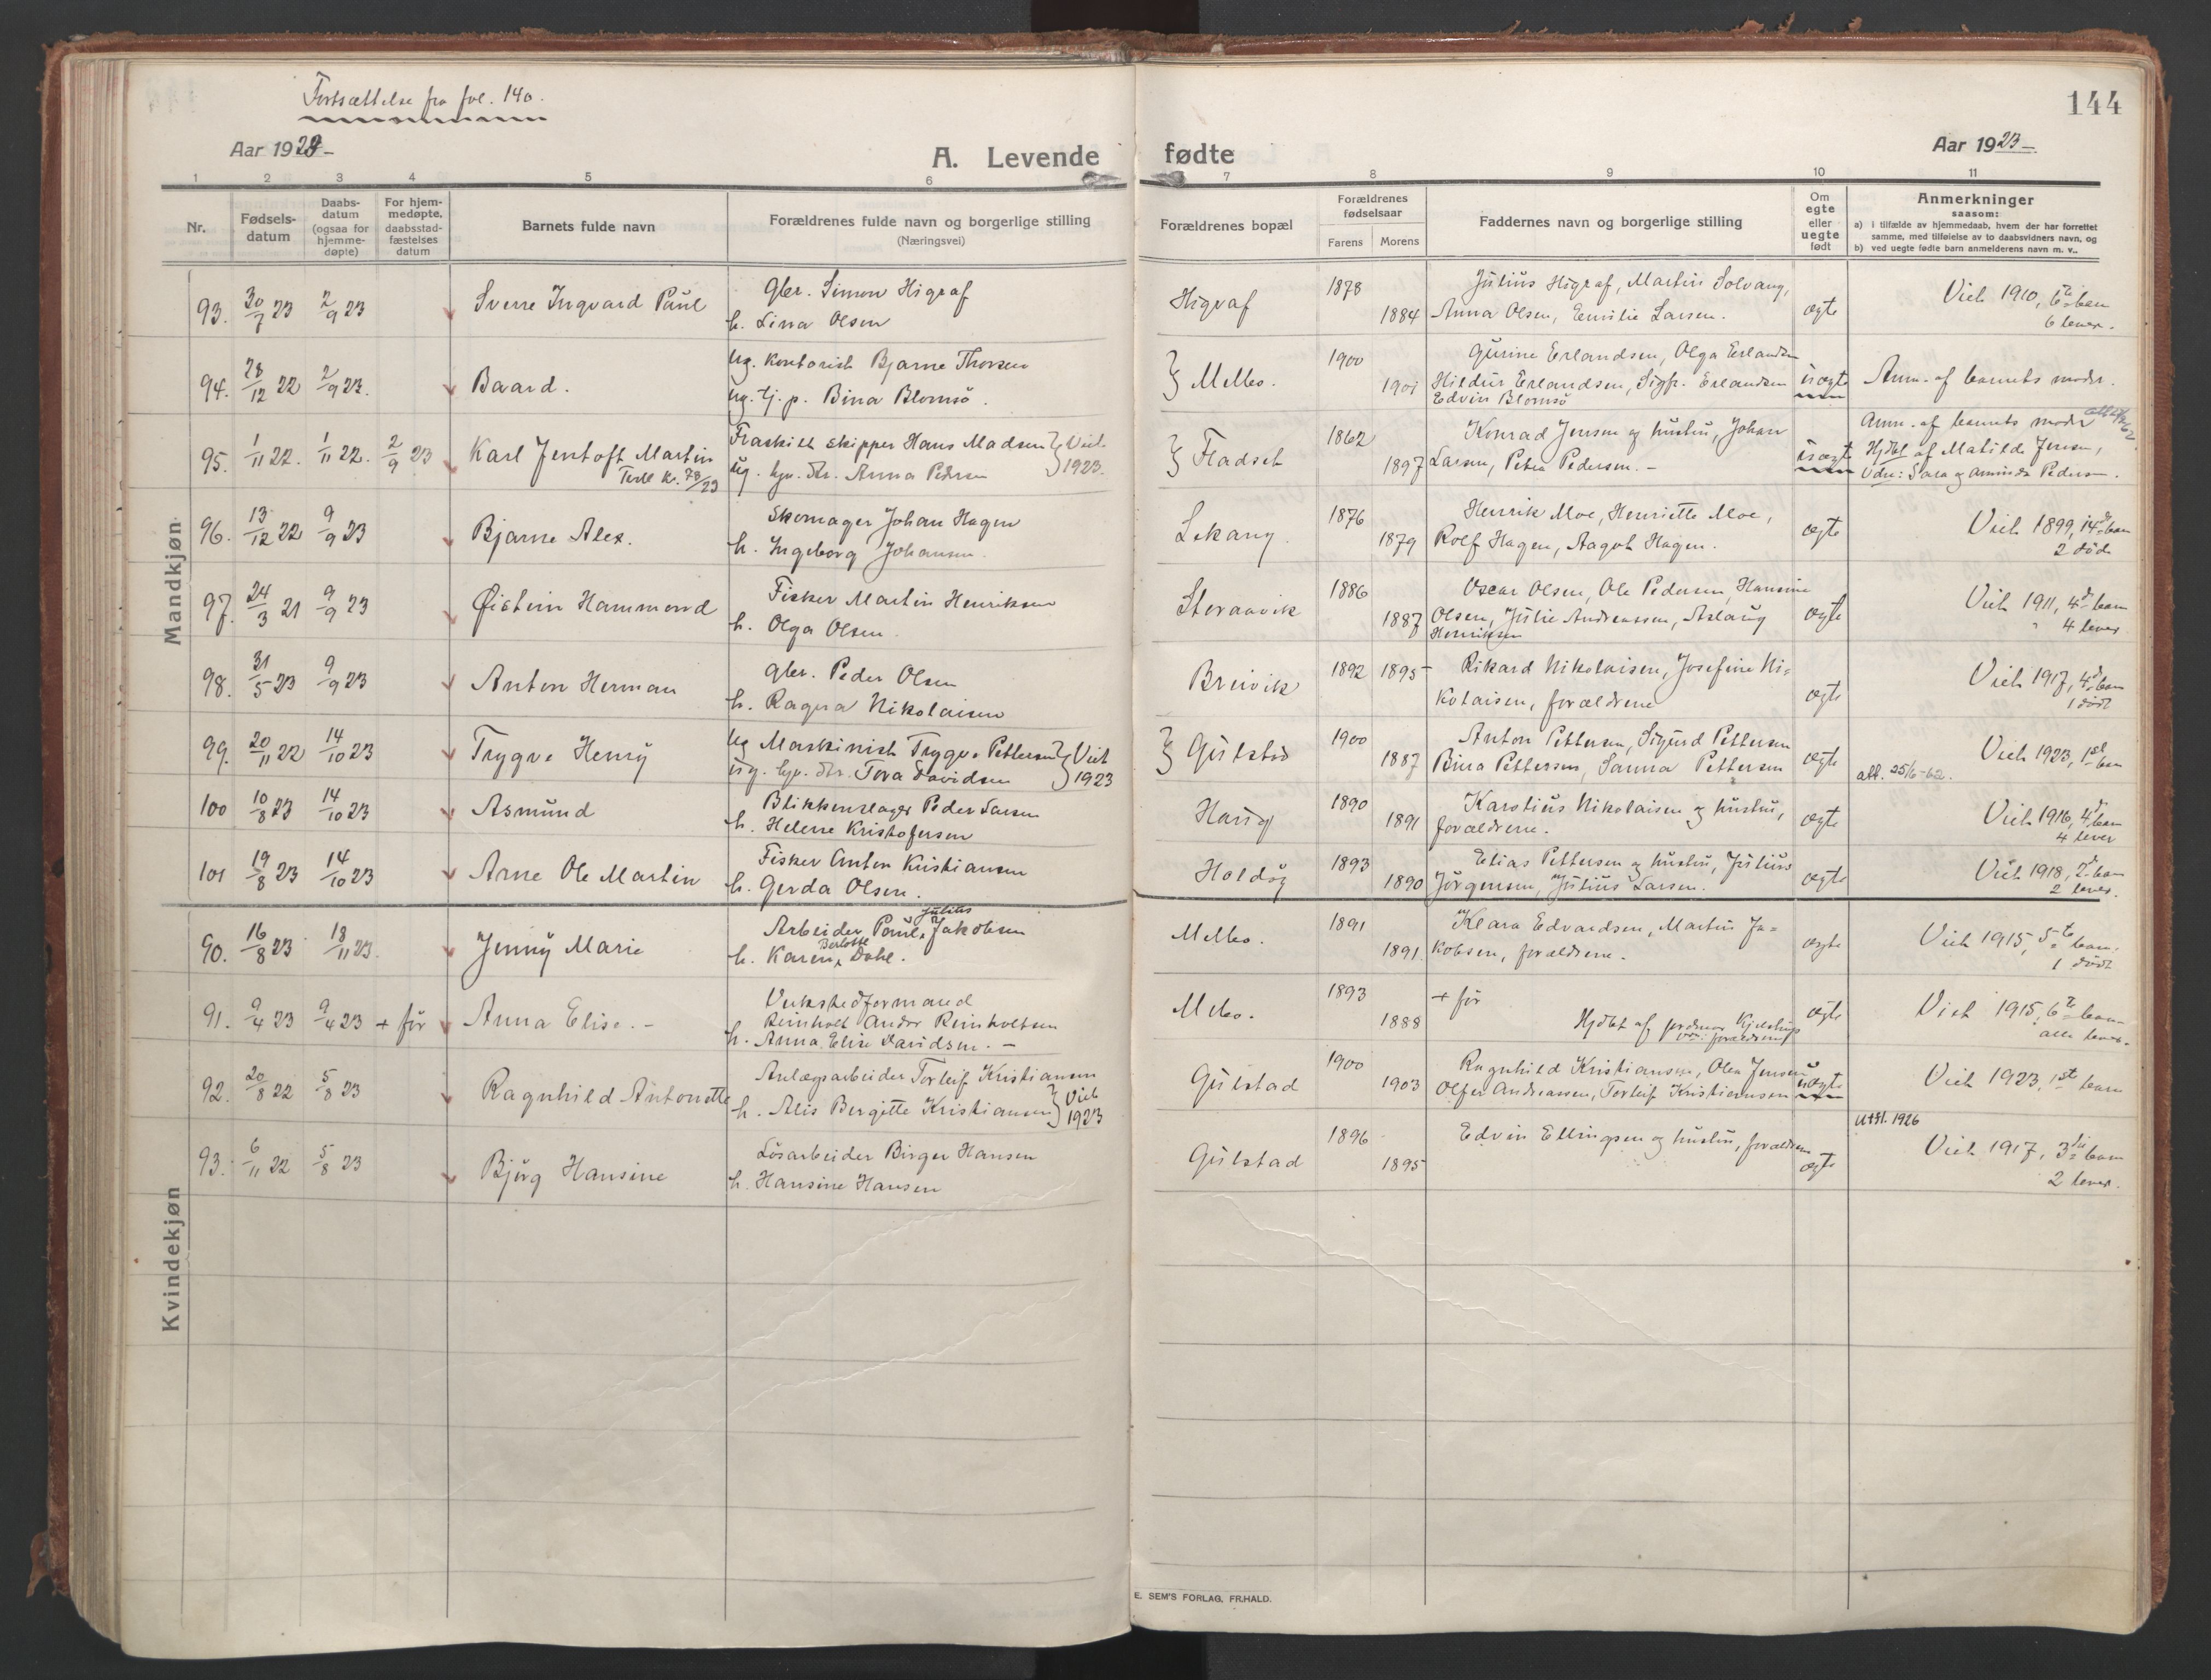 Fortsættelse fra fol. 140.
144
Aar 1923-
A. Levende fødte
Aar 1923-
1 2 3 4 5 6 7 8 9 10 11
Nr.
Fødsels-
datum
Daabs-
datum
(ogsaa for
hjemme-
døpte)
For hjem-
medøpte,
daabsstad-
fæstelses
datum
Barnets fulde navn
Forældrenes fulde navn og borgerlige stilling
(Næringsvei)
Forældrenes bopæl
Forældrenes
fødselsaar
Farens Morens
Faddernes navn og borgerlige stilling
Om
egte
eller
uegte
født
Anmerkninger
saasom:
a) i tilfælde av hjemmedaab, hvem der har forrettet
samme, med tilføielse av to daabsvidners navn, og
b) ved uegte fødte barn anmelderens navn m. v..
Mandkjøn
93. 30/7 23 2/9 23 Sverre Ingvard Paul
Gbr. Simon Higraf
h. Lina Olsen
Higraf 1878 1884
Julius Higraf, Martin Solvang,
Anna Olsen, Emilie Larsen.
egte
Viet 1910, 6te barn
6 lever.
94. 28/12 22 2/9 23. Baard.
Ug. kontorist Bjarne Thorsen
ug. tj. p. Bina Blomsö.
Melbo. 1900 1901
Gurine Erlandsen, Olga Erlandsen
Hildur Erlandsen, Sigfr. Erlandsen
Edvin Blomsö
uegte
Anm. af barnets moder.
95. 1/11 22. 1/11 22. 2/9 23 Karl Jentoft Martin
Fraskilt skipper Hans Madsen
ug. hjv. dtr. Anna Pedersen
Viet
1923.
Fladset 1862 1897
Konrad Jensen og hustru, Johan
Larsen, Petra Pedersen. -
uegte
Anm. af barnets moder
Hjdbt af Matilde Jensen,
Vdn: Sara og Aminda Pedersen.
96. 13/12 22 9/9 23 Bjarne Alex.
Skomager Johan Hagen
h. Ingeborg Johansen.
Lekang. 1876 1879
Henrik Moe, Henriette Moe,
Rolf Hagen, Aagot Hagen.
egte
Viet 1899, 14de barn
2 död
97. 24/3 21 9/9 23 Øistein Hammond
Fisker Martin Henriksen
h. Olga Olsen.
1886 1887
Oscar Olsen, Ole Pedersen, Hansine
Olsen, Julie Andreassen, Aslaug
Henriksen
egte
Viet 1911, 4de barn
4 lever
98. 31/5 23 9/9 23 Anton Herman
Gbr. Peder Olsen
h. Ragna Nikolaisen
Breivik 1892 1895
Rikard Nikolaisen, Josefine Ni=
kolaisen, forældrene
egte
Viet 1917, 4de barn
1 död
99. 20/11 22 14/10 23 Trygve Henry
Ug Maskinist Trygve Pettersen
ug. hjv. dtr. Tora Davidsen
Viet
1923
Gulstad 1900 1887
Anton Pettersen, Sigurd Pettersen
Bina Pettersen, Sanna Pettersen
egte
Viet 1923, 1st barn
att. 25/6-62.
100 10/8 23 14/10 23 Asmund
Blikkenslager Peder Larsen
h. Helene Kristofersen
Haug 1890 1891
Karolius Nikolaisen og hustru,
forældrene.
egte
Viet 1916, 4de barn
4 lever
101 19/8 23 14/10 23 Arne Ole Martin
Fisker Anton Kristiansen
h. Gerda Olsen.
Holdøy 1893 1890
Elias Pettersen og hustru, Julius
Jörgensen, Julius Larsen.
egte
Viet 1918, 2de barn
2 lever.
Kvindekjøn
90. 16/8 23 18/11 23. Jenny Marie
Arbeider Paul Julius Jakobsen
h. Karen Berlotte Dahl.
Melbo. 1891 1891.
Klara Edvardsen, Martin Ja=
kobsen, forældrene.
egte
Viet 1915, 5te barn.
1 död
91. 9/4 23 9/4 23 + för Anna Elise. -
Verkstedformand
Reinholt Andor Reinholtsen
h. Anna Elise Davidsen. -
Melbo. 1893 1888
+ för
Hjdbt af jordmor Kjelstrup
vdn: forældrene
egte
Viet 1915, 6te barn
alle lever.
92. 20/8 22 5/8 23 Ragnhild Antonette
Anlægsarbeider Torleif Kristiansen
h. Alis Bergitte Kristiansen
Viet
1923
Gulstad 1900 1903
Ragnhild Kristiansen, Olea Jensen
Olfer Andreassen, Torleif Kristiansen
uegte
Viet 1923, 1st barn
Utfl. 1926
93. 6/11 22 5/8 23 Bjørg Hansine
Lösarbeider Birger Hansen
h. Hansine Hansen
Gulstad 1896 1895
Edvin Ellingsen og hustru, forældrene
egte
Viet 1917, 3die barn
2 lever.
E. SEM'S FORLAG, FR.HALD.